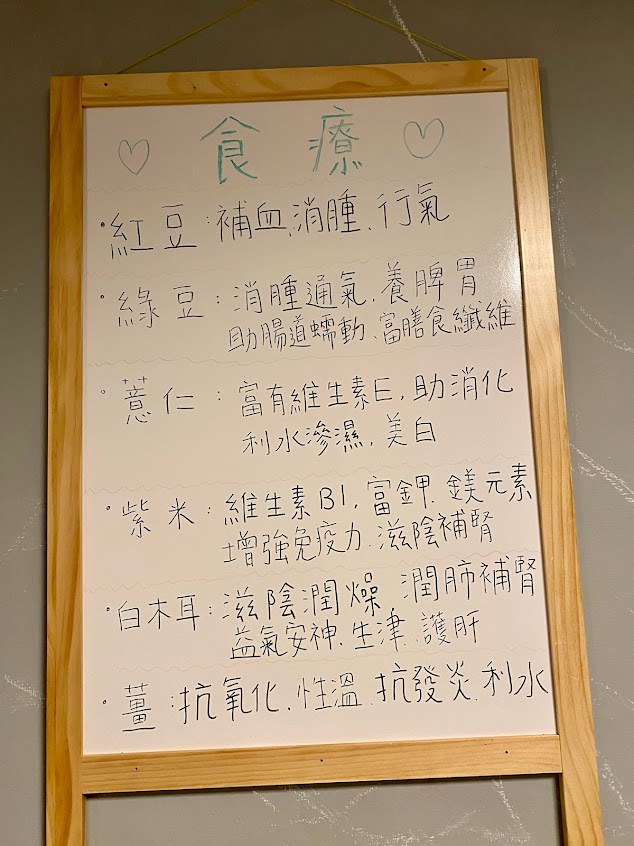 食療
·紅豆:補血、消腫、行氣
·綠豆:消腫通氣、養脾胃
助腸道蠕動、富膳食纖維
·薏仁:富有維生素E,助消化
利水滲濕、美白
·紫米:維生素B1,富鉀、鎂元素
增強免疫力、滋陰補腎
·白木耳:滋陰潤燥 潤肺補腎
益氣安神、生津、護肝
·薑:抗氧化、性溫、抗發炎、利水